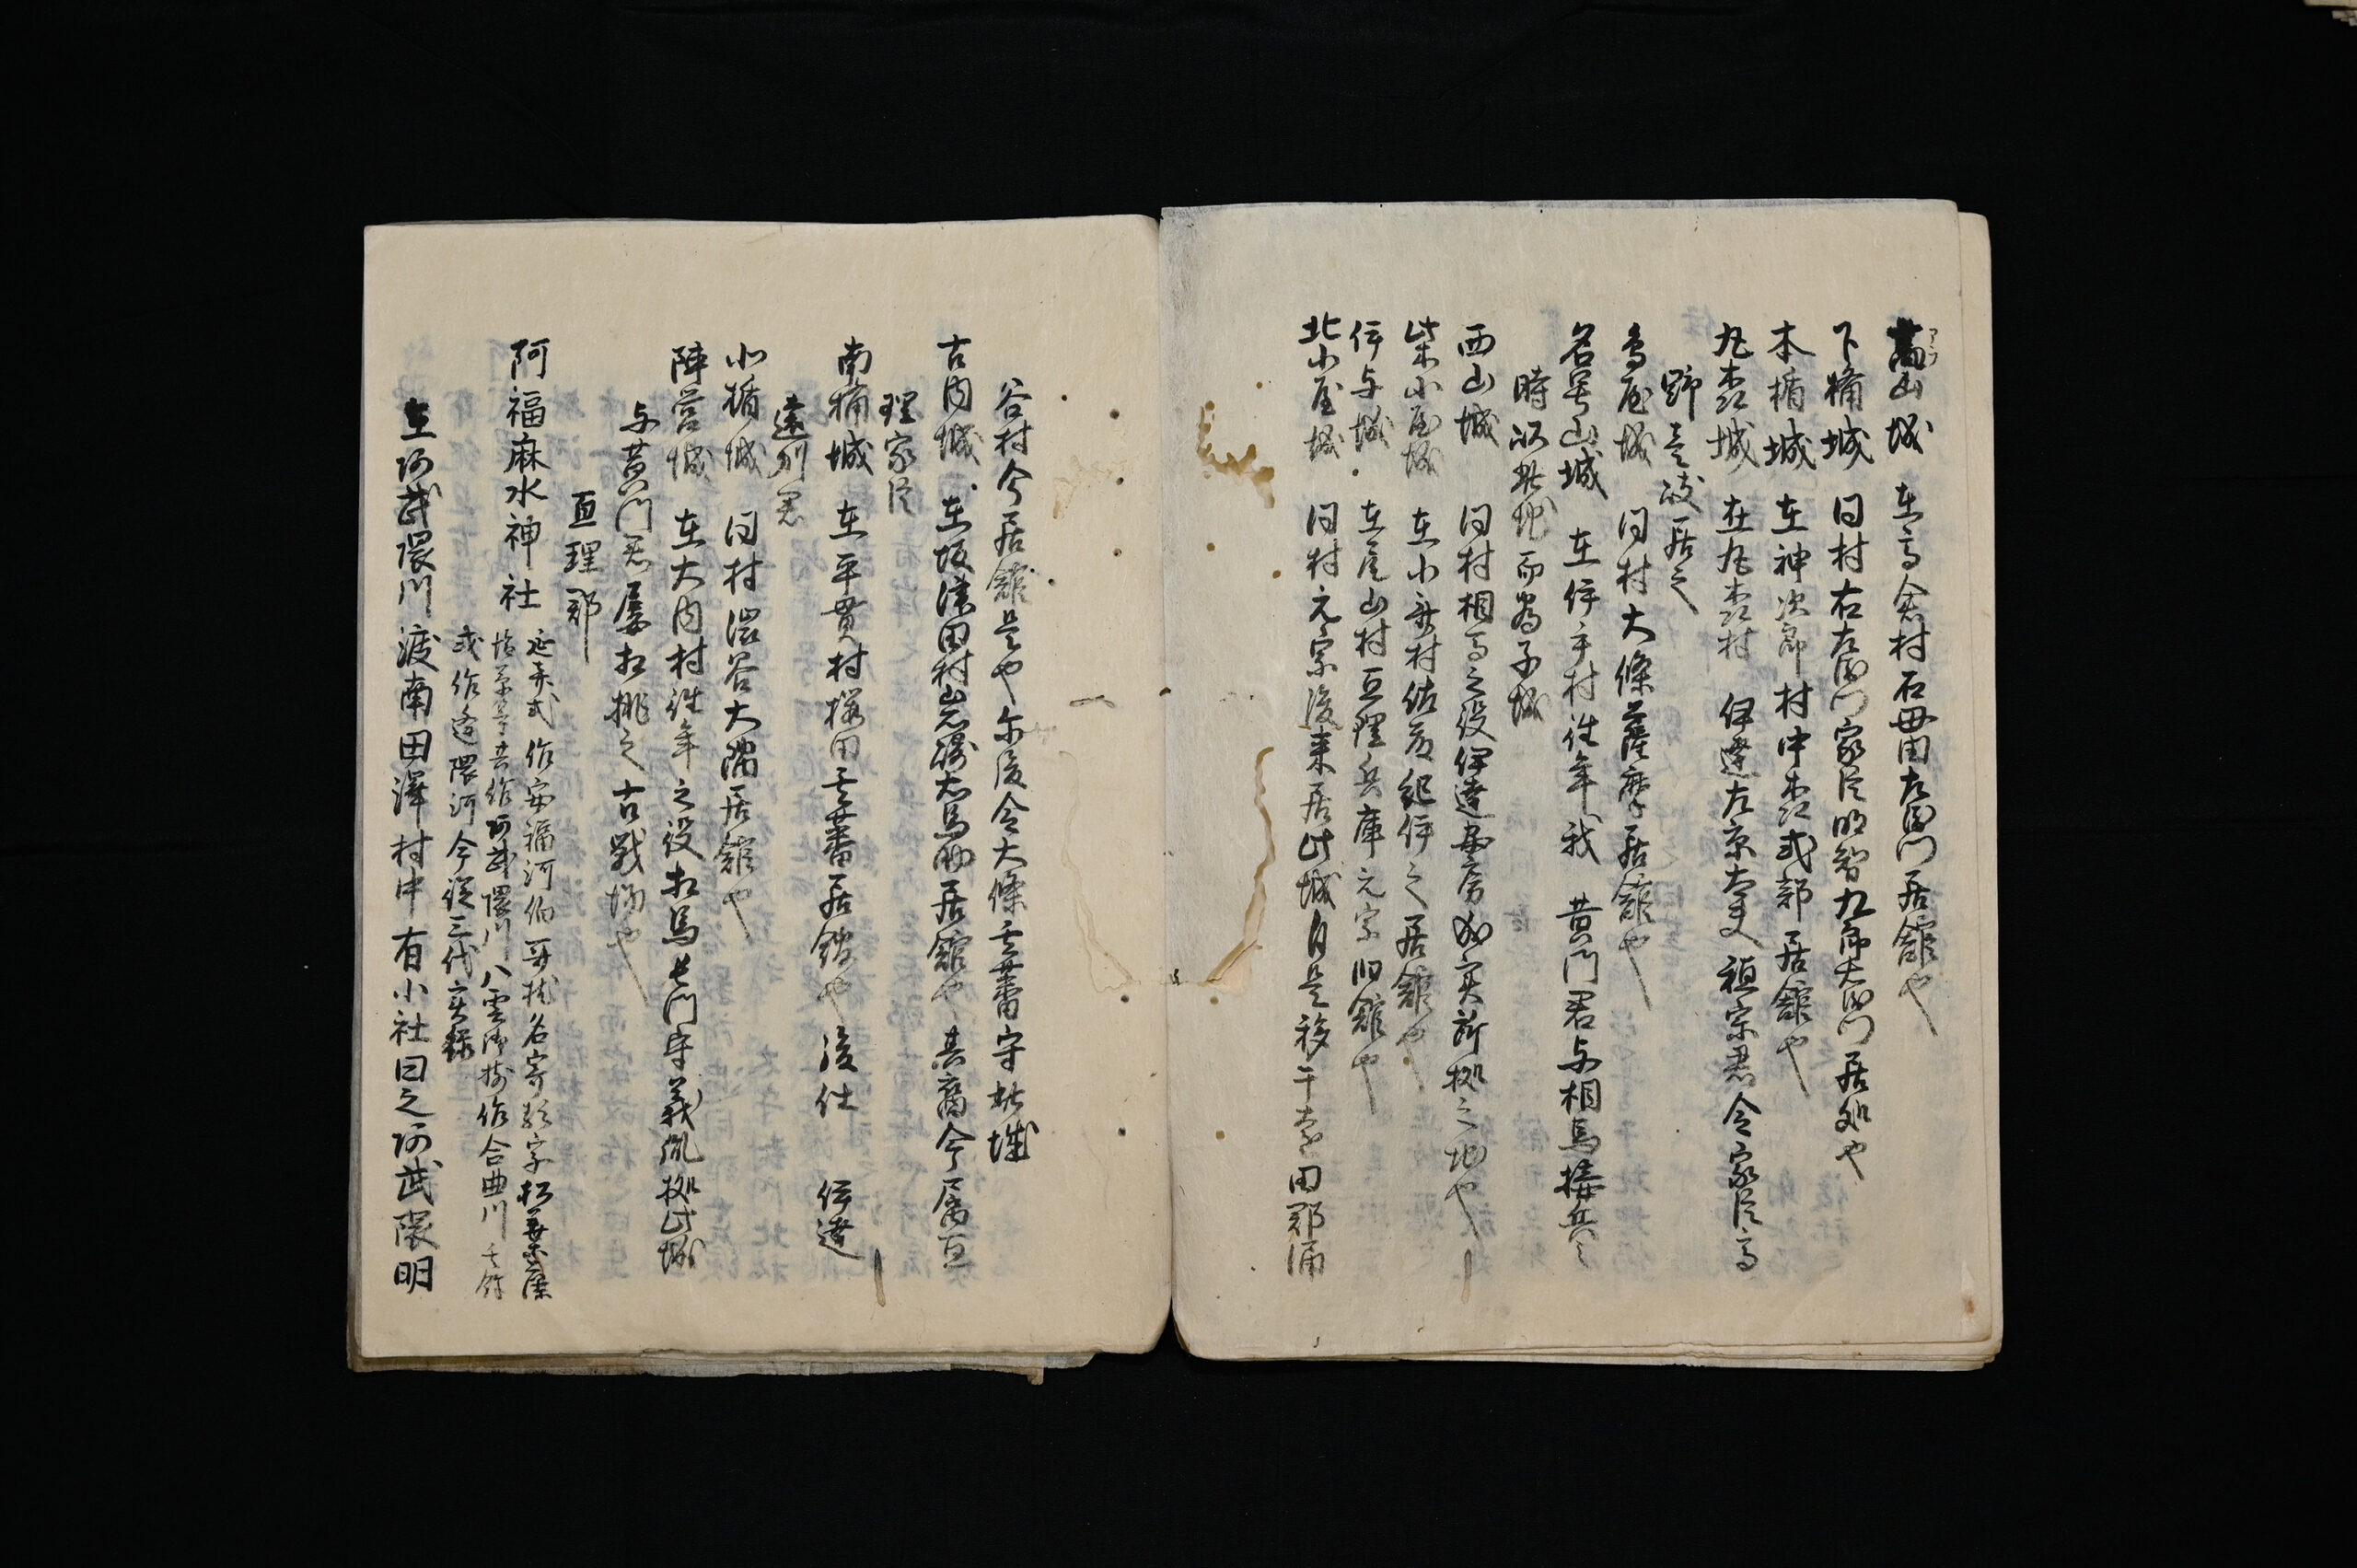 蒿山城 在高倉村石母田左衛門居館也
アラ
下楯城 同村右左衛門家臣明智九郎左衛門居処也
本楯城 在神次郎村中森式部居館也
丸森城 在丸森村 伊達左京大夫 稙宗君令家臣高
野壱岐居之
鳥屋城 同村大條薩摩居館也
名号山城 在伊手村往年我 黄門君与相馬接兵之
時以此地而為子城
西山城 同村相馬之役伊達安房成実所拠之地也
柴小屋城 在小斎村佐藤紀伊之居館也
伊与城 在尾山村亘理兵庫元宗旧館也
北小屋城 同村元宗後来居此城自是移于遠田郡涌
谷村今居館是也尓後令大條玄蕃守此城
古内城 在坂津田村山崎右馬助居館也其裔今属亘
理家臣
南楯城 在平貫村桜田玄蕃居館也後仕 伊達
遠州君
小楯城 同村渋谷大隅居館也
陣営城 在大内村往年之役相馬長門守義胤拠此城
与黄門君屡相挑之古戦場也
亘理郡
阿福麻水神社 延喜式作安福河伯
名寄類字松葉集
藻塩草等共作阿武隈川八雲御抄作合曲川
或作逢隈河今従三代実録
在阿武隈川渡南田澤村中有小社曰之阿武隈明